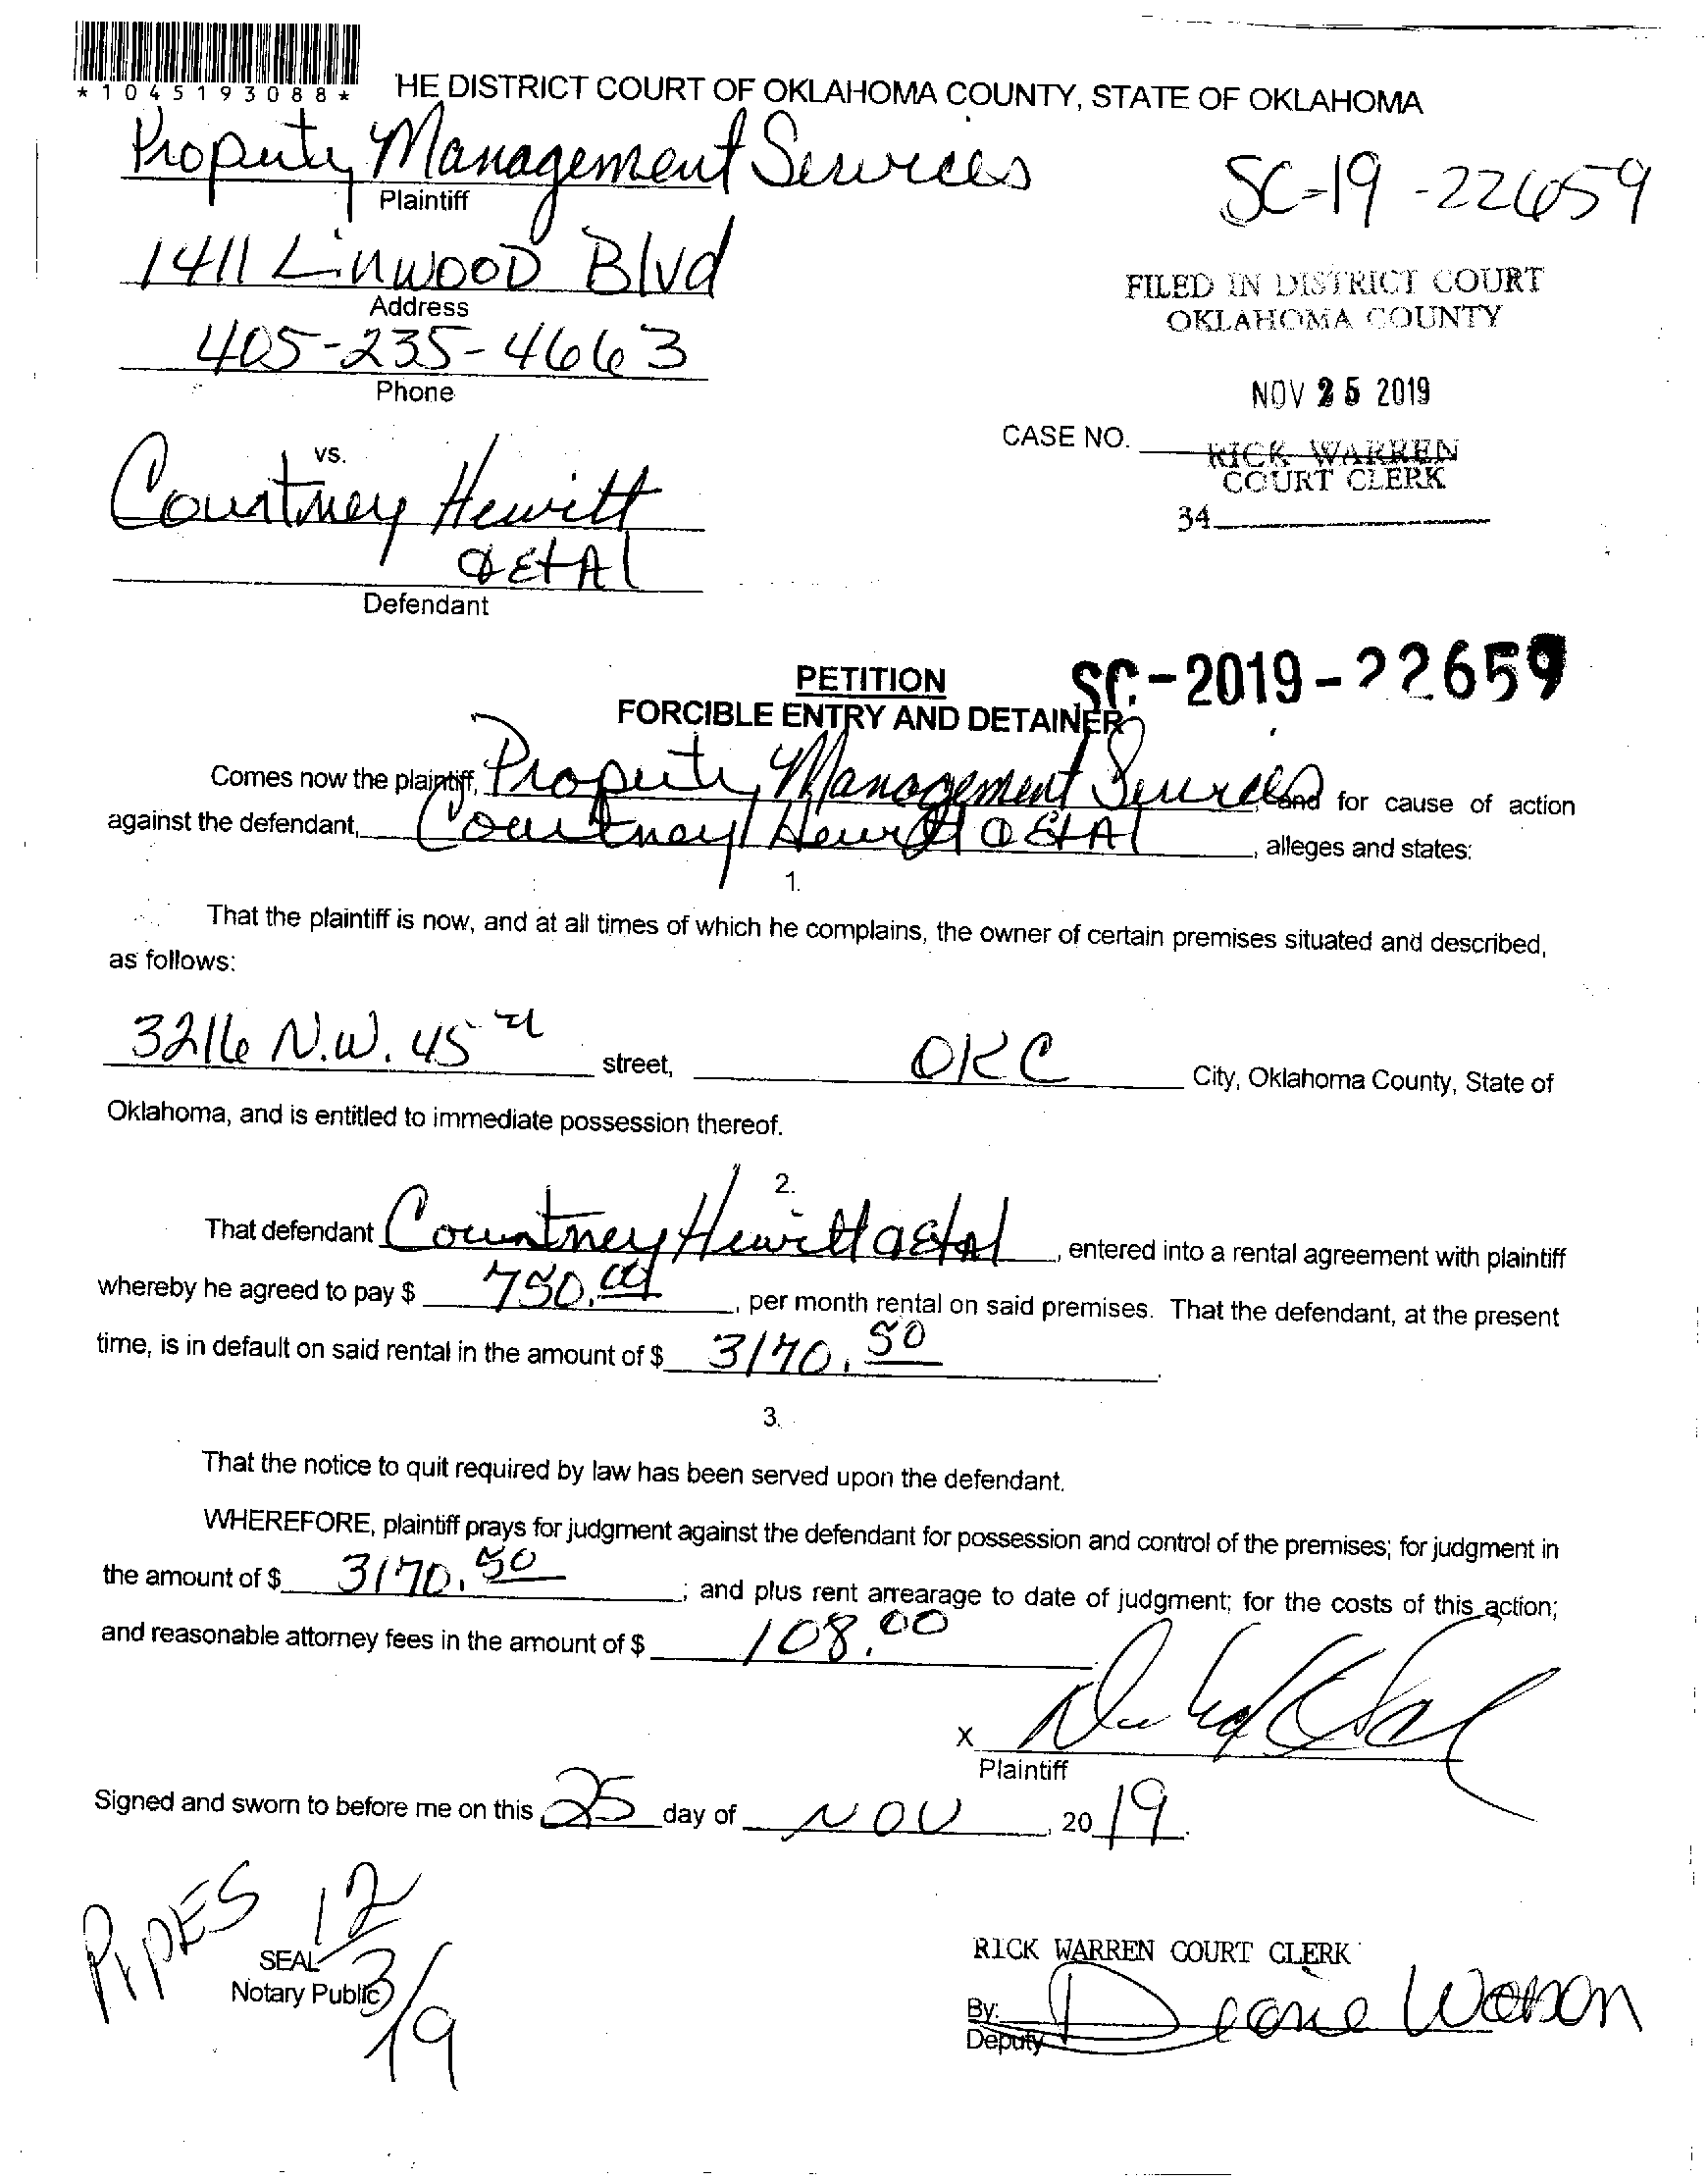 *1045193088*
HE DISTRICT COURT OF OKLAHOMA COUNTY, STATE OF OKLAHOMA
Property Management Services
Plaintiff
SC-19-22659
1411 Linwood Blvd
Address
FILED IN DISTRICT COURT
OKLAHOMA COUNTY
405-235-4663
Phone
NOV 25 2019
CASE NO.
RICK WARREN
COURT CLERK
34
vs.
Courtney Hewitt
& Et Al
Defendant
PETITION
SC-2019-22659
FORCIBLE ENTRY AND DETAINER
Comes now the plaintiff, Property Management Services, and for cause of action
against the defendant, Courtney Hewitt & Et Al, alleges and states:
1.
That the plaintiff is now, and at all times of which he complains, the owner of certain premises situated and described,
as follows:
3216 N.W. 45th street, OKC City, Oklahoma County, State of
Oklahoma, and is entitled to immediate possession thereof.
2.
That defendant Courtney Hewitt & et al, entered into a rental agreement with plaintiff
whereby he agreed to pay $ 750.00, per month rental on said premises. That the defendant, at the present
time, is in default on said rental in the amount of $ 3170.50.
3.
That the notice to quit required by law has been served upon the defendant.
WHEREFORE, plaintiff prays for judgment against the defendant for possession and control of the premises; for judgment in
the amount of $ 3170.50; and plus rent arrearage to date of judgment; for the costs of this action;
and reasonable attorney fees in the amount of $ 108.00
X
Plaintiff
Signed and sworn to before me on this 25 day of NOV, 20 19.
PIPES 12/3/19
SEAL
Notary Public
RICK WARREN COURT CLERK
By:
Deputy